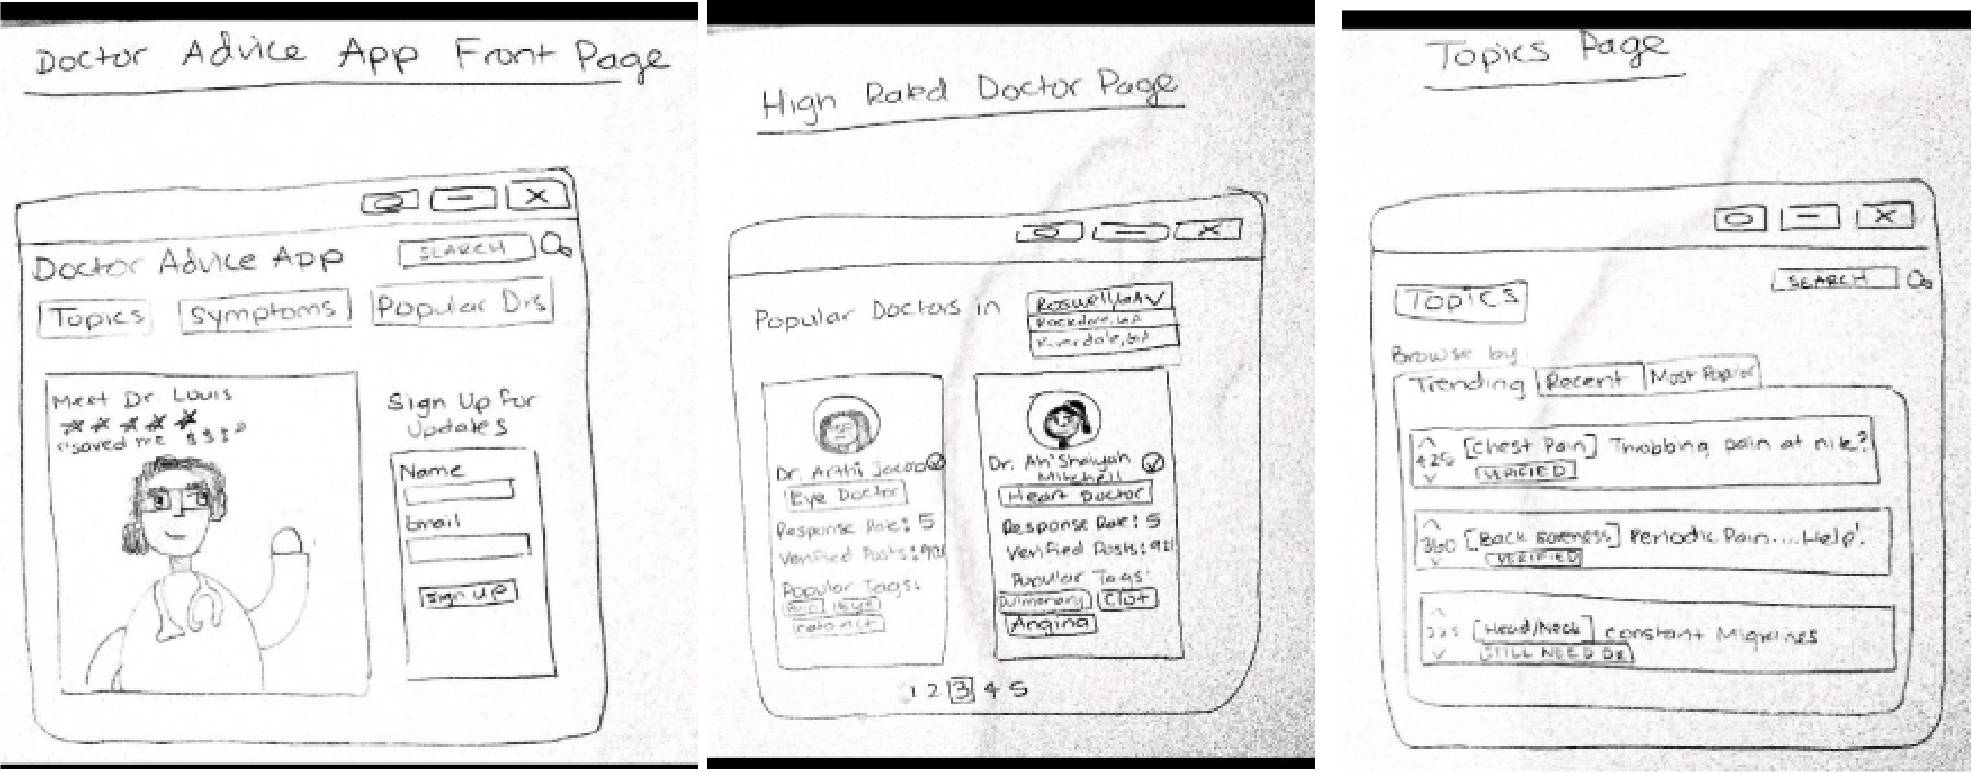 Doctor Advice App Front Page
X
Doctor Advice App
SEARCH
Topics
Symptoms
Popular Drs
Meet Dr Louis
"saved me $$$"
Sign Up for
Updates
Name
Email
Sign Up
High Rated Doctor Page
X
Popular Doctors in
Roswell, GA
Riverdale, GA
Dr. Arthi Jacob
Eye Doctor
Response Rate: 5
Verified Posts:
Popular Tags:
Dr. Ah'Shaiyah
Mitchell
Heart Doctor
Response Rate: 5
Verified Posts:
Popular Tags:
Pulmonary
Clot
Angina
1 2 3 4 5
Topics Page
X
SEARCH
Topics
Browse by:
Trending
Recent
Most Popular
425
[Chest Pain] Throbbing pain at nite?
VERIFIED
360
[Back Soreness] Periodic Pain....Help!
VERIFIED
[Head/Neck] Constant Migraines
STILL NEED DR